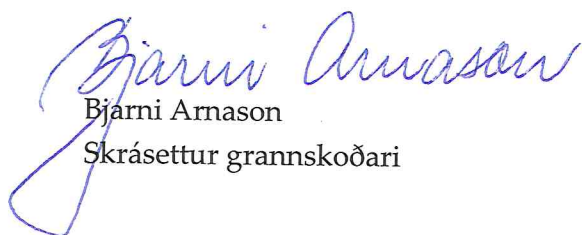 Bjarni Arnason
Bjarni Arnason
Skrásettur grannskoðari